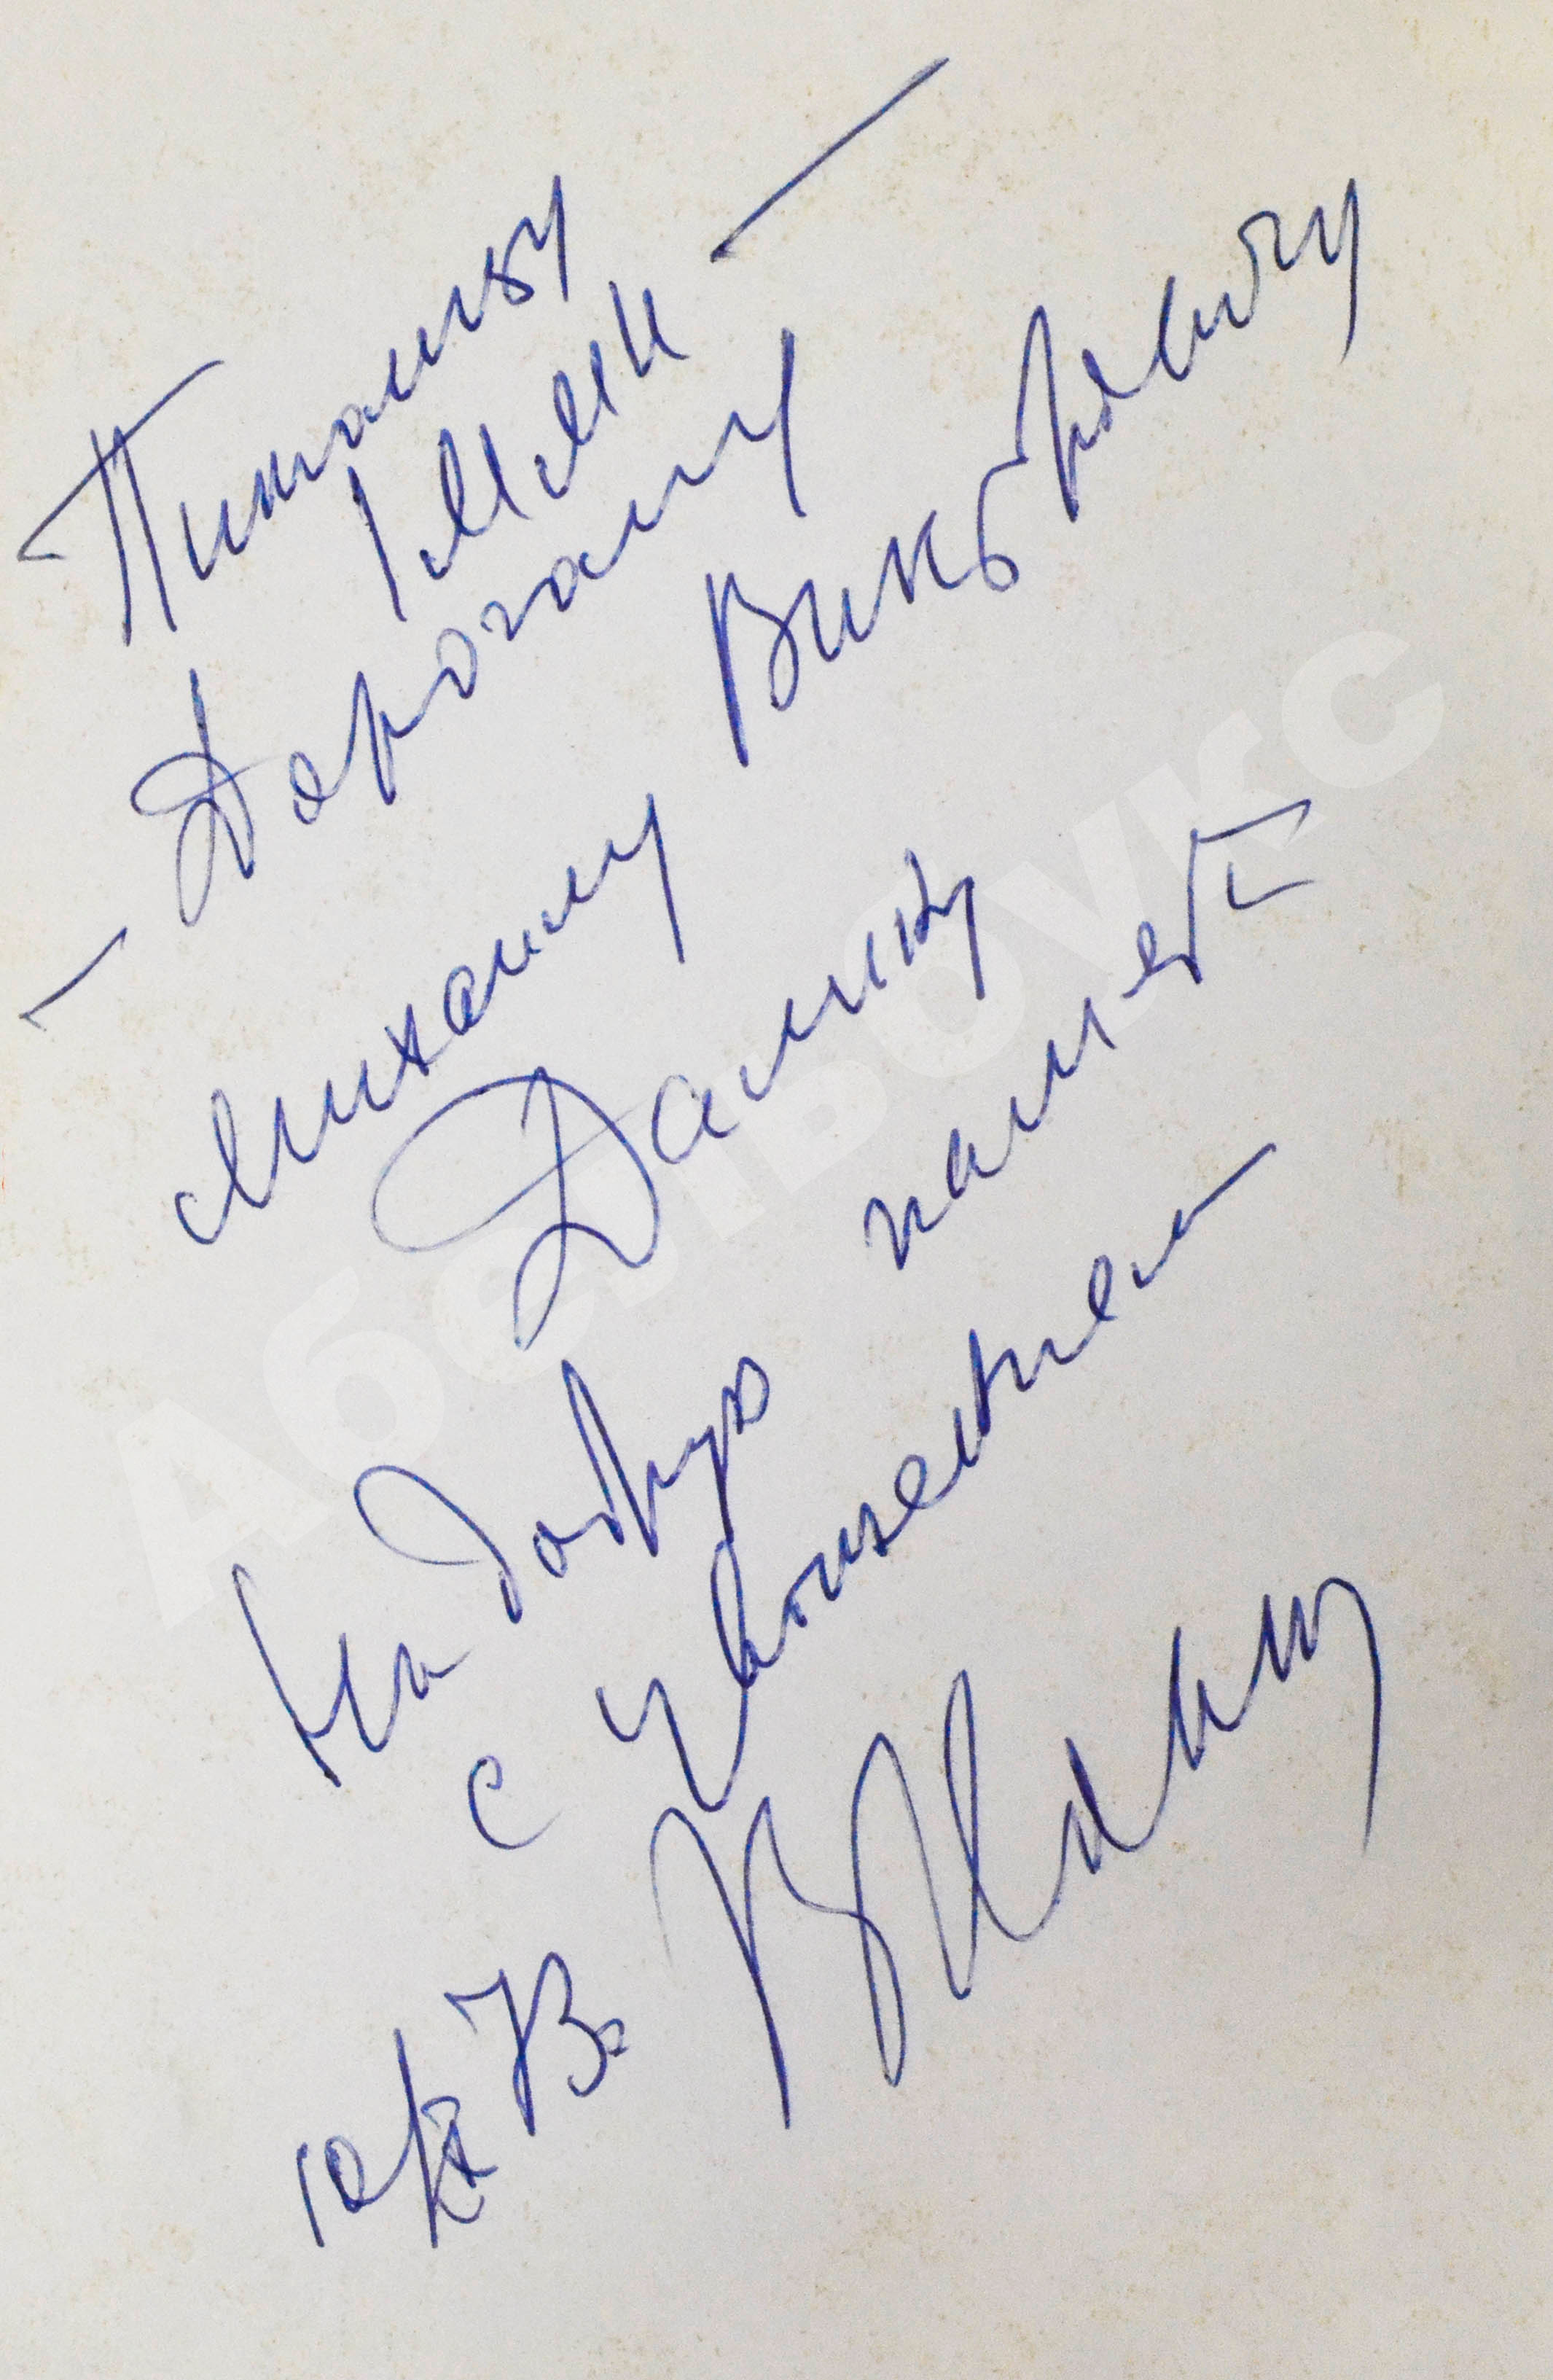 Питомцу
1 ММИ —
— Дорогому
Михаилу Викторовичу
Далину
На добрую память
с уважением
10/IX 73.
АбельБукс